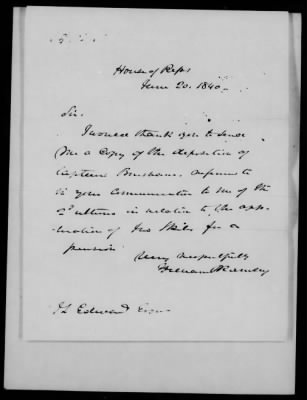 House of Reps
June 20. 1840
Sir.
I would thank you to send
me a copy of the deposition of
Captain referred to
in your communication to me of the
2d ultimo in relation to the app-
lication of for a
pension
Very respectfully
William Ramsey
J L Edwards Esqr